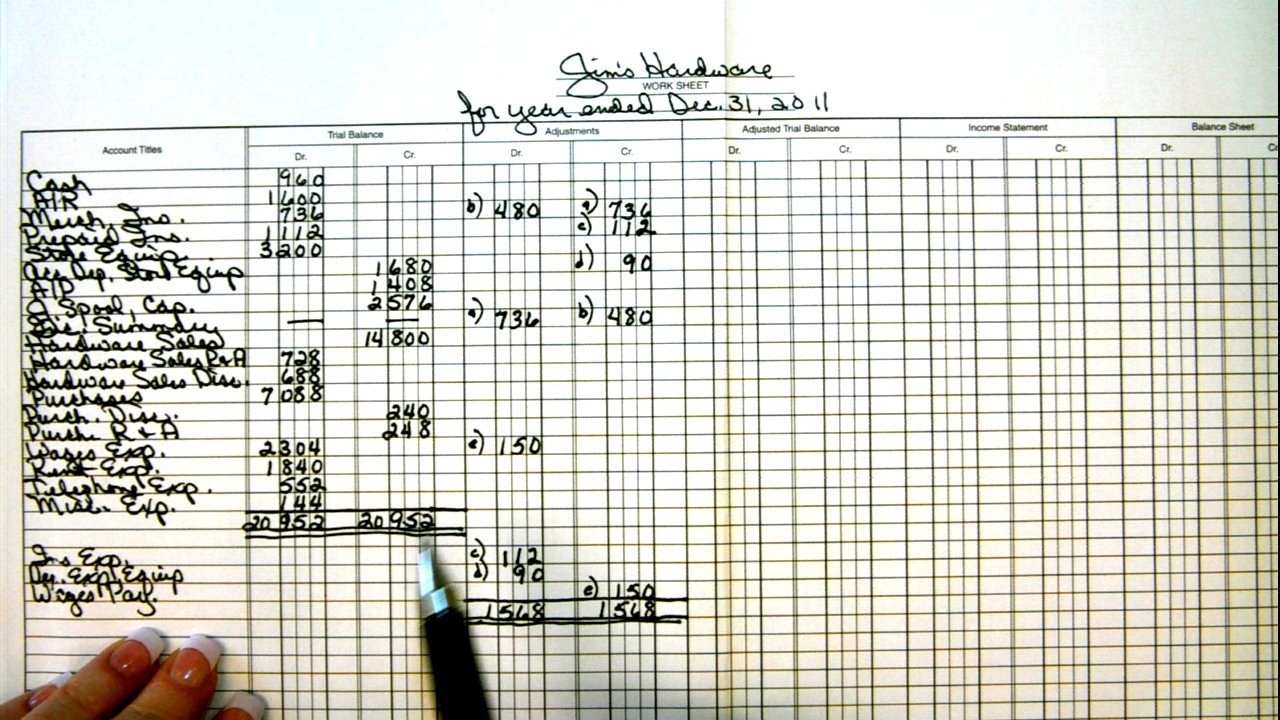 Jim's Hardware
WORK SHEET
for year ended Dec. 31, 2011
Account Titles Trial Balance Adjustments Adjusted Trial Balance Income Statement Balance Sheet
Dr. Cr. Dr. Cr. Dr. Cr. Dr. Cr. Dr. C
Cash 960
A/R 1600
Merch. Inv. 736 b) 480 a) 736
Prepaid Ins. 1112 c) 112
Store Equip. 3200
Acc. Dep. Store Equip 1680 d) 90
A/P 1408
D. Spool, Cap. 2576
Inc. Summary — — a) 736 b) 480
Hardware Sales 14800
Hardware Sales R+A 728
Hardware Sales Disc. 688
Purchases 7088
Purch. Disc. 240
Purch. R+A 248
Wages Exp. 2304 e) 150
Rent Exp. 1840
Telephone Exp. 552
Misc. Exp. 144
20952 20952
Ins Exp. c) 112
Dep. Exp. Equip d) 90
Wages Pay. e) 150
1568 1568